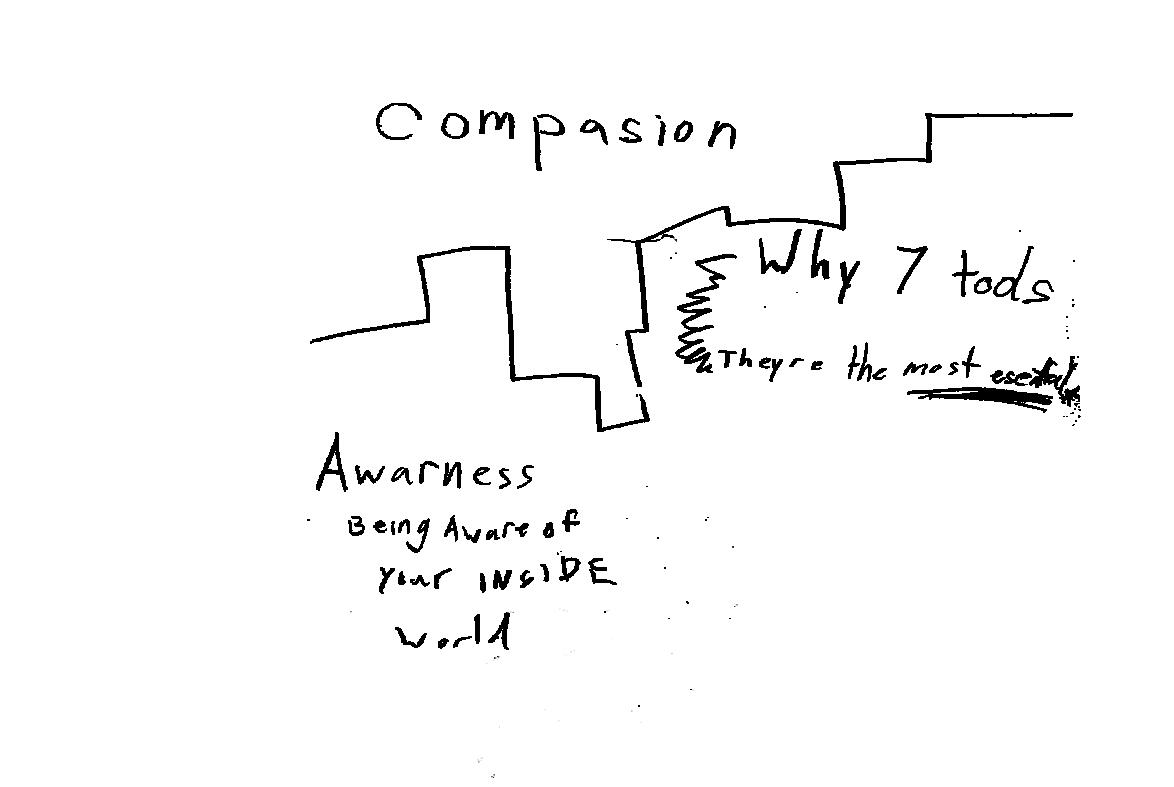 Compasion
Why 7 tools
They're the most esential
Awarness
Being Aware of
your INSIDE
world